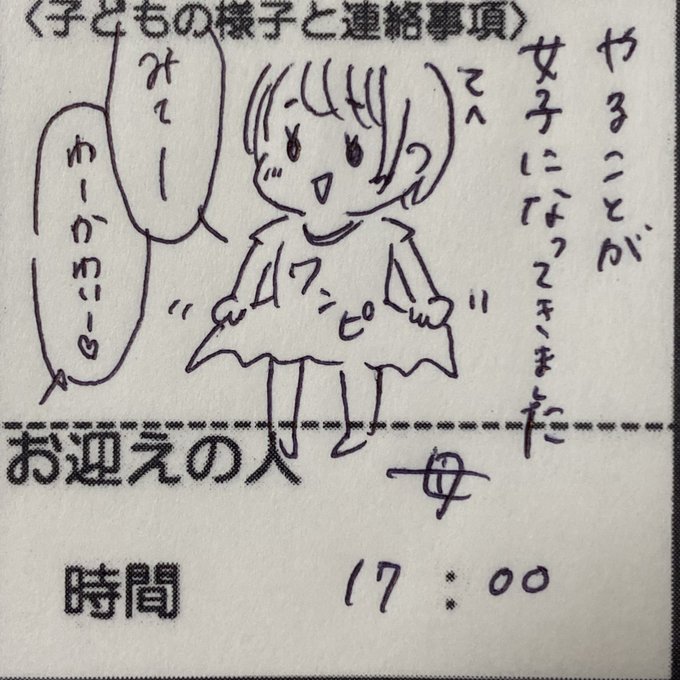 〈子どもの様子と連絡事項〉
やることが
女子になってきました
てへ
みてー
わーかわいー♡
ワンピ
お迎えの人 母
時間 17:00